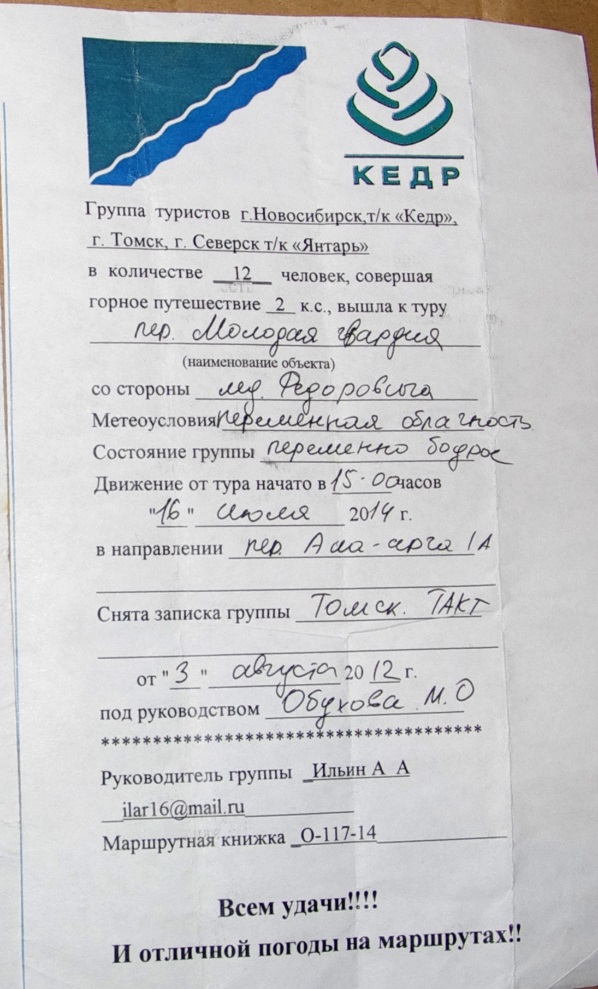 КЕДР
Группа туристов г.Новосибирск,т/к «Кедр»,
г. Томск, г. Северск т/к «Янтарь»
в количестве 12 человек, совершая
горное путешествие 2 к.с., вышла к туру
пер. Молодая гвардия
(наименование объекта)
со стороны лед. Федоровича
Метеоусловия переменная облачность
Состояние группы переменно бодрое
Движение от тура начато в 15.00 часов
"16" июля 2014 г.
в направлении пер. Ала-арча 1А
Снята записка группы Томск. ТАКТ
от "3" августа 2012 г.
под руководством Обухова М.О
***************************************
Руководитель группы Ильин А А
ilar16@mail.ru
Маршрутная книжка О-117-14
Всем удачи!!!!
И отличной погоды на маршрутах!!